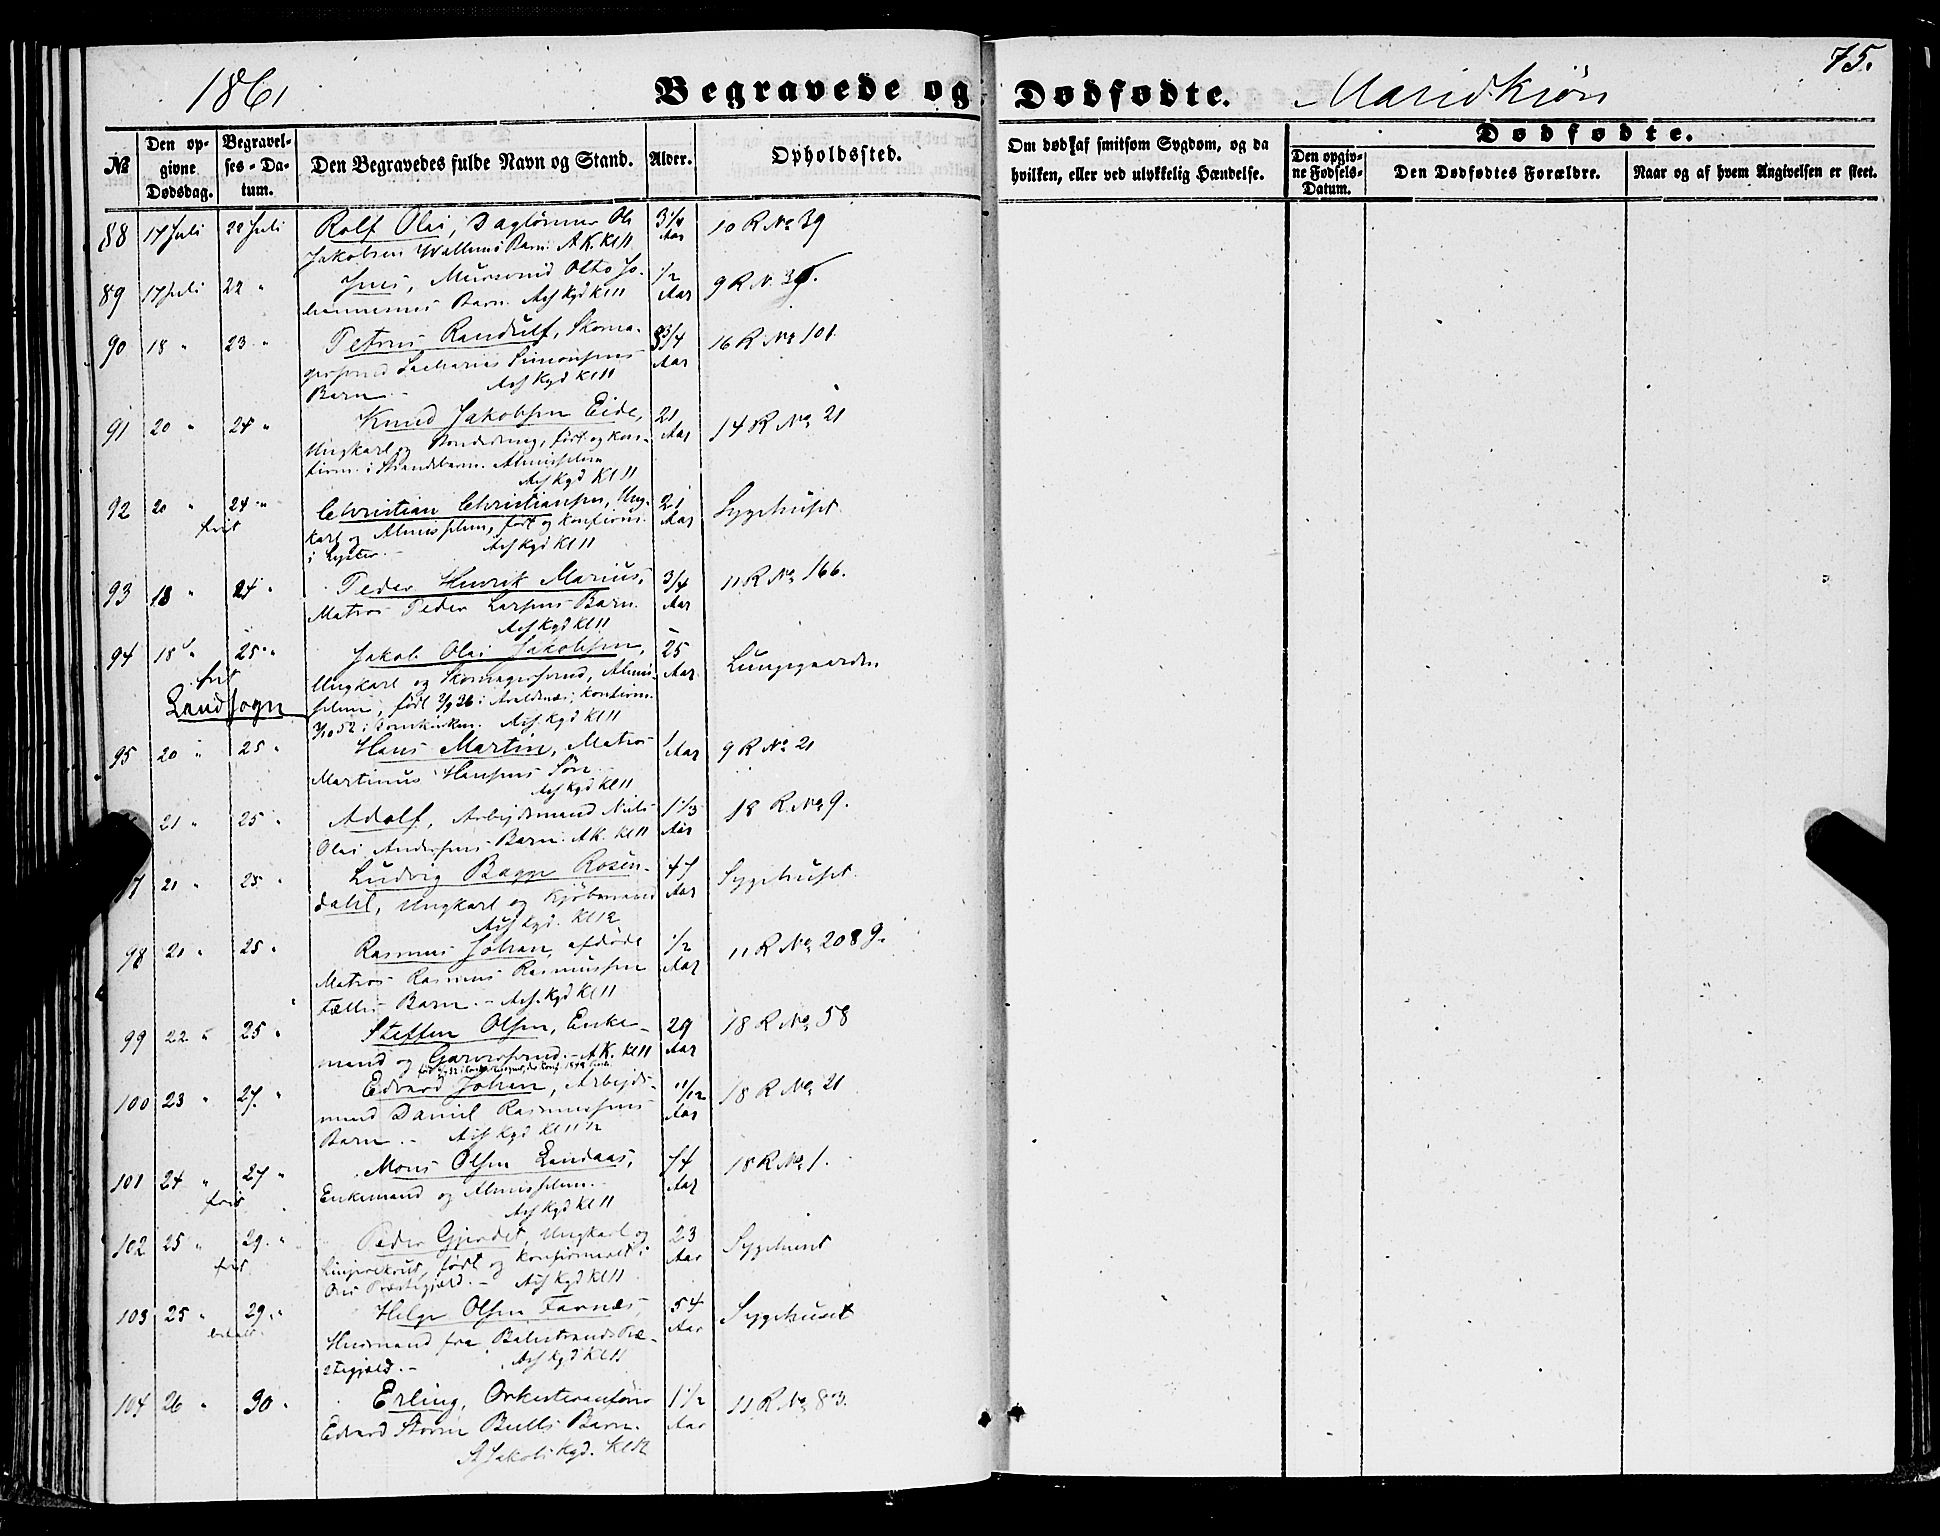 1861
Begravede og Dødfødte.
Mandkiøn
75.
№
Den opgivne Dødsdag.
Begravelses-Datum.
Den Begravedes fulde Navn og Stand.
Alder.
Opholdssted.
Om død af smitsom Sygdom, og da hvilken, eller ved ulykkelig Hændelse.
Dødfødte.
Den opgivne Fødsels-Datum.
Den Dødfødtes Forældre.
Naar og af hvem Angivelsen er skeet.
88 17 Juli 22 Juli Rolf Olai, Daglønner Ole 3 1/4 Aar 10 R No 39
Jakobsen Wallems Barn. AK. Kl 11
89 17 Juli 22 " Jens, Muursvend Otto Jo- 1/2 Aar 9 R N.
hannesens Barn. AsJ Kgd Kl 11
90 18 " 23 " Petrus Randulf, Skoma- 3/4 Aar 16 R No 101
gersvend Zacharias Simonsens
Barn.- AsJ Kgd Kl 11
91 20 " 24 " Knud Jakobsen Eide, 21 Aar 14 R No 21
Ungkarl og Bondedreng, født og kon-
firm. i Strandebarm. Almisselem
AsJ Kgd Kl 11
92 20 " 24 " Christian Christiansen, Ung- 21 Aar Sygehuset
frit
karl og Almisselem, født og konfirm.
i Lyster.- AsJ Kgd Kl 11
93 18 " 24 " Peder Henrik Marius, 3/4 Aar 11 R No 166.
Matros Peder Larsens Barn.
AsJ Kgd Kl 11
94 18 " 25 " Jakob Olai Jakobsen, 25 Aar Lungegaarden
frit
Landsogn
Ungkarl og Skomagersvend, Almis-
selem, født i Avaldsnæs; konfirm.
3/10 52 i Domkirken. AsJ. Kgd Kl 11
95 20 " 25 " Hans Martin, Matros 1 Aar 9 R No 21
Martinus Hansens Søn
AsJ Kgd Kl 11
21 " 25 " Adolf, Arbejdsmand Niels 1 1/3 Aar 18 R. No 9.
Olai Andersens Barn. AK. Kl 11
7 21 " 25 " Ludvig Bagge Rosen- 47 Aar Sygehuset.
dahl, Ungkarl og Kjøbmand
AsJ Kgd. Kl 12
98 21 " 25 " Rasmus Johan, afdøde 1/2 Aar 11 R No 208 9.
Matros Rasmus Rasmussen
Fælles Barn.- AsJ. Kgd Kl 11
99 22 " 25 " Steffen Olsen, Enke- 29 Aar 18 R No 58
mand og Garversvend.- AK. Kl 11
100 23 " 27. " Edvard Johan, Arbejds- 11/12 Aar 18 R No 21
mand Daniel Rasmussens
Barn.- AsJ Kgd Kl 11 1/2
101 24 " 27 " Mons Olsen Landaas, 74 Aar 18 R No 1.
frit
Enkemand og Almisselem.-
AsJ Kgd Kl 11
102 25 " 29. " Peder Gjerdet, Ungkarl og 23 Aar Sygehuset
frit
Linjerekrut, født og konfirmeret i
Præstegjæld.- AsJ Kgd Kl 11
103 25 " 29. " Helge Olsen Farnæs, 54 Aar Sygehuset
betalt.
Huusmand fra Balestrands Præ-
stegjæld.- AsJ Kgd Kl 11
104 26 " 30 " Erling, Orkesteranfører 1 1/2 Aar 11 R No 83.
Edvard Storm Bulls Barn.
St Jakobs Kgd. Kl 12